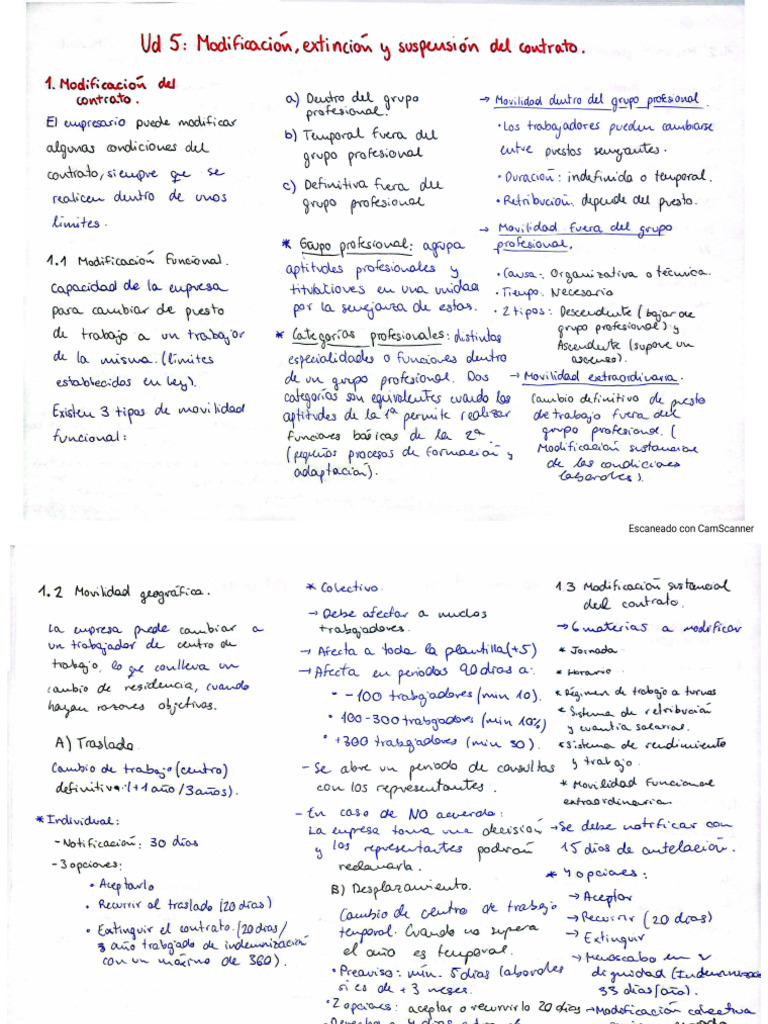 Ud 5: Modificación, extinción y suspensión del contrato.
1. Modificación del
contrato.
El empresario puede modificar
algunas condiciones del
contrato, siempre que se
realicen dentro de unos
límites.
1.1 Modificación funcional.
Capacidad de la empresa
para cambiar de puesto
de trabajo a un trabajor
de la misma. (límites
establecidos en ley).
Existen 3 tipos de movilidad
funcional:
a) Dentro del grupo
profesional.
b) Temporal fuera del
grupo profesional
c) Definitiva fuera del
grupo profesional
* Grupo profesional: agrupa
aptitudes profesionales y
titulaciones en una unidad
por la semejanza de estas.
* Categorías profesionales: distintas
especialidades o funciones dentro
de un grupo profesional. Dos
categorías son equivalentes cuando las
aptitudes de la 1ª permite realizar
funciones básicas de la 2ª
(pequeños procesos de formación y
adaptación).
→ Movilidad dentro del grupo profesional.
• Los trabajadores pueden cambiarse
entre puestos semejantes.
• Duración: indefinida o temporal.
• Retribución: depende del puesto.
→ Movilidad fuera del grupo
profesional.
• Causa: Organizativa o técnica.
• Tiempo: Necesario
• 2 tipos: Descendente (bajar de
grupo profesional) y
Ascendente (supone un
ascenso).
→ Movilidad extraordinaria.
Cambio definitivo de puesto
de trabajo fuera del
grupo profesional. (
Modificación sustancial
de las condiciones
laborales).
Escaneado con CamScanner
1.2 Movilidad geográfica.
La empresa puede cambiar a
un trabajador de centro de
trabajo, lo que conlleva un
cambio de residencia, cuando
hayan razones objetivas.
A) Traslado
Cambio de trabajo (centro)
definitiva (+1 año/3 años).
* Individual:
- Notificación: 30 días
- 3 opciones:
• Aceptarlo
• Recurrir al traslado (20 días)
• Extinguir el contrato. (20 días/
año trabajado de indemnización
con un máximo de 360).
* Colectivo.
→ Debe afectar a muchos
trabajadores.
→ Afecta a toda la plantilla (+5)
→ Afecta en periodos 90 días a:
• -100 trabajadores (min 10).
• 100-300 trabajadores (min 10%)
• +300 trabajadores (min 30).
- Se abre un periodo de consultas
con los representantes.
- En caso de NO acuerdo:
La empresa toma una decisión
y los representantes podrán
reclamarla.
B) Desplazamiento.
Cambio de centro de trabajo
temporal. Cuando no supera
el año es temporal.
• Preaviso: mín. 5 días laborales
si es de +3 meses.
• 2 opciones: aceptar o recurrirlo 20 días
1.3 Modificación sustancial
del contrato.
→ 6 materias a modificar
* Jornada
* Horario
* Régimen de trabajo a turnos
* Sistema de retribución
y cuantía salarial.
* Sistema de rendimiento
y trabajo.
* Movilidad Funcional
extraordinaria
→ Se debe notificar con
15 días de antelación.
* 4 opciones:
→ Aceptar
→ Recurrir (20 días)
→ Extinguir
→ Menoscabo en
dignidad (Indemnizac
33 días/año).
→ Modificación colectiva